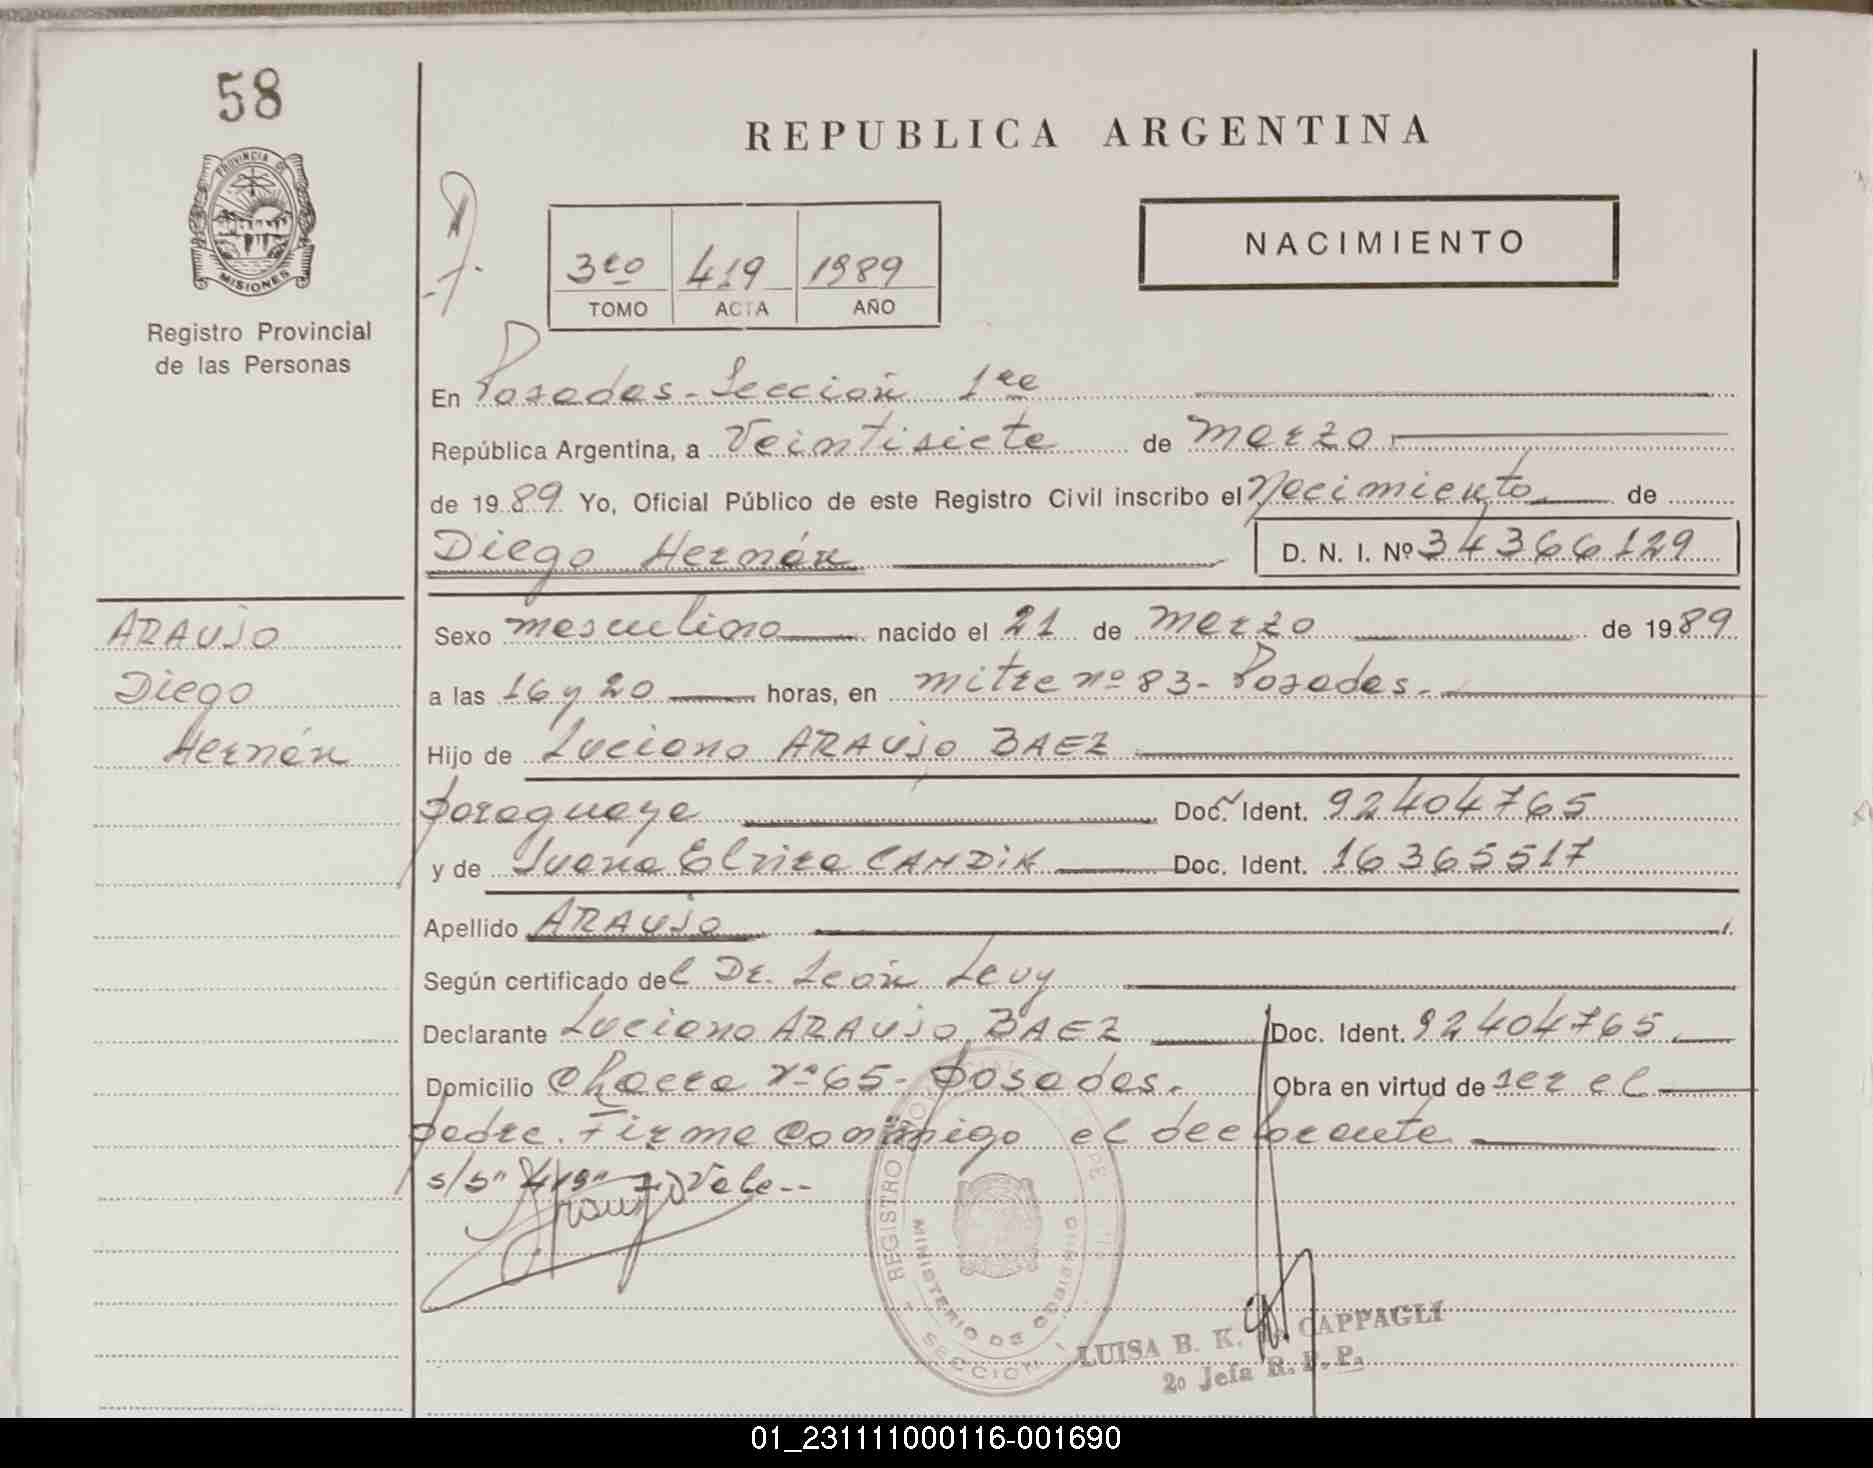 58
PROVINCIA DE
MISIONES
Registro Provincial
de las Personas
REPUBLICA ARGENTINA
3ro 419 1989
TOMO ACTA AÑO
NACIMIENTO
En Posadas - Sección 1ra
República Argentina, a Veintisiete de marzo
de 1989 Yo, Oficial Público de este Registro Civil inscribo el Nacimiento de
Diego Hernán D. N. I. Nº 34366129
ARAUJO
Diego
Hernán
Sexo masculino nacido el 21 de marzo de 1989
a las 16 y 20 horas, en mitre nº 83 - Posadas.
Hijo de Luciano ARAUJO BAEZ
paraguaya Doc. Ident. 92404765
y de Juana Elvira CANDIA Doc. Ident. 16365517
Apellido ARAUJO
Según certificado del Dr. León Levy
Declarante Luciano ARAUJO BAEZ Doc. Ident. 92404765
Domicilio Chacra nº 65 - Posadas. Obra en virtud de ser el
padre. Firma conmigo el declarante
s/b" 419" Vale--
Araujo
REGISTRO
MINISTERIO DE GOBIERNO
SECCION 1
LUISA B. K. CAPPAGLI
2o Jefa R. P. P.
01_231111000116-001690